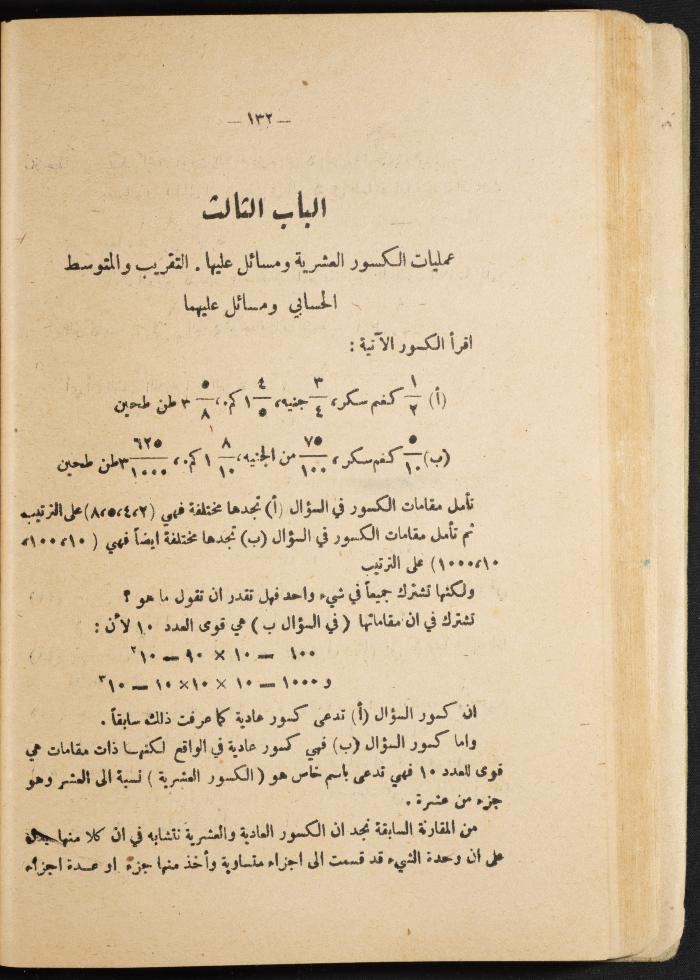 — ١٣٢ —
الباب الثالث
عمليات الكسور العشرية ومسائل عليها . التقريب والمتوسط
الحسابي ومسائل عليهما
اقرأ الكسور الآتية :
(أ) ١/٢ كغم سكر، ٣/٤ جنيه، ٤/٥ ١ كم.، ٥/٨ ٣ طن طحين
(ب) ٥/١٠ كغم سكر، ٧٥/١٠٠ من الجنيه، ٨/١٠ ١ كم.، ٦٢٥/١٠٠٠ ٣ طن طحين
تأمل مقامات الكسور في السؤال (أ) تجدها مختلفة فهي (٢،٤،٥،٨) على الترتيب
ثم تأمل مقامات الكسور في السؤال (ب) تجدها مختلفة ايضاً فهي ( ١٠،١٠٠،
١٠،١٠٠٠) على الترتيب
ولكنها تشترك جميعاً في شيء واحد فهل تقدر ان تقول ما هو ؟
تشترك في ان مقاماتها ( في السؤال ب ) هي قوى العدد ١٠ لأن :
١٠٠ = ١٠ × ١٠ = ١٠٢
و ١٠٠٠ = ١٠ × ١٠ × ١٠ = ١٠٣
ان كسور السؤال (أ) تدعى كسور عادية كما عرفت ذلك سابقاً .
واما كسور السؤال (ب) فهي كسور عادية في الواقع لكنها ذات مقامات هي
قوى للعدد ١٠ فهي تدعى باسم خاص هو ( الكسور العشرية ) نسبة الى العشر وهو
جزء من عشرة .
من المقارنة السابقة نجد ان الكسور العادية والعشرية تتشابه في ان كلا منها
على ان وحدة الشيء قد قسمت الى اجزاء متساوية وأخذ منها جزء او عدة اجزاء